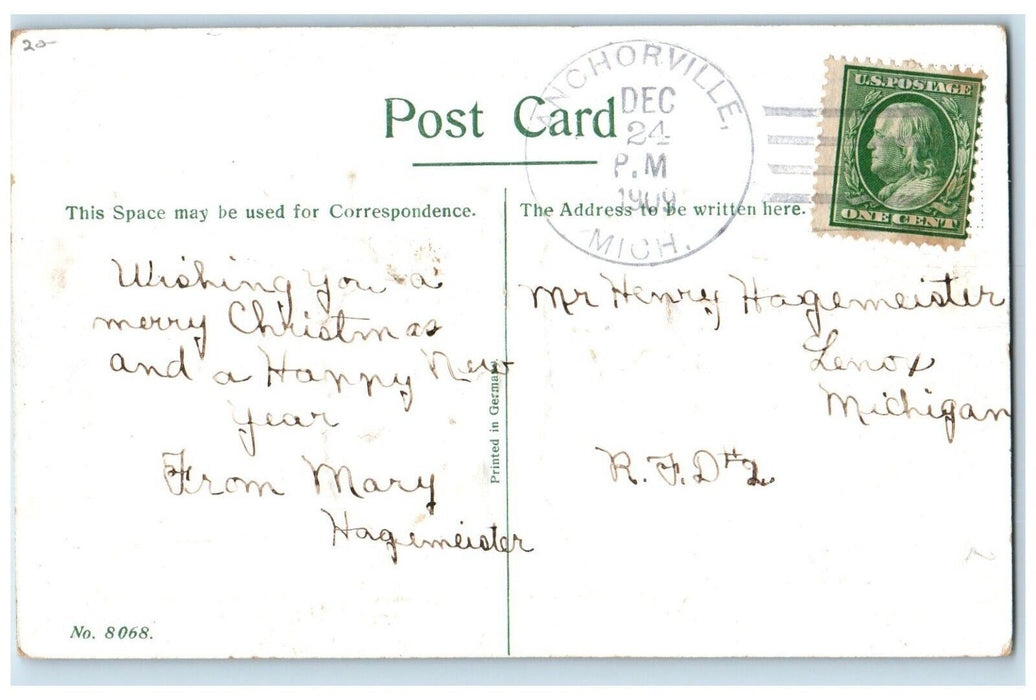 20
Post Card
ANCHORVILLE,
DEC
24
P.M
1909
MICH.
U.S. POSTAGE
ONE CENT
This Space may be used for Correspondence.
The Address to be written here.
Wishing you a
merry Christmas
and a Happy New
Year
From Mary
Hagemeister
Mr Henry Hagemeister
Lenox
Michigan
R.F.D #2
Printed in Germany
No. 8068.